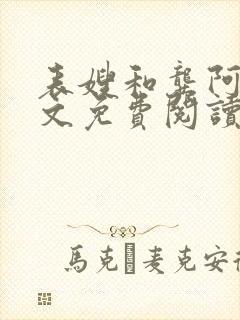 表嫂和龔阿
文免費閱讀
馬克·麦克安